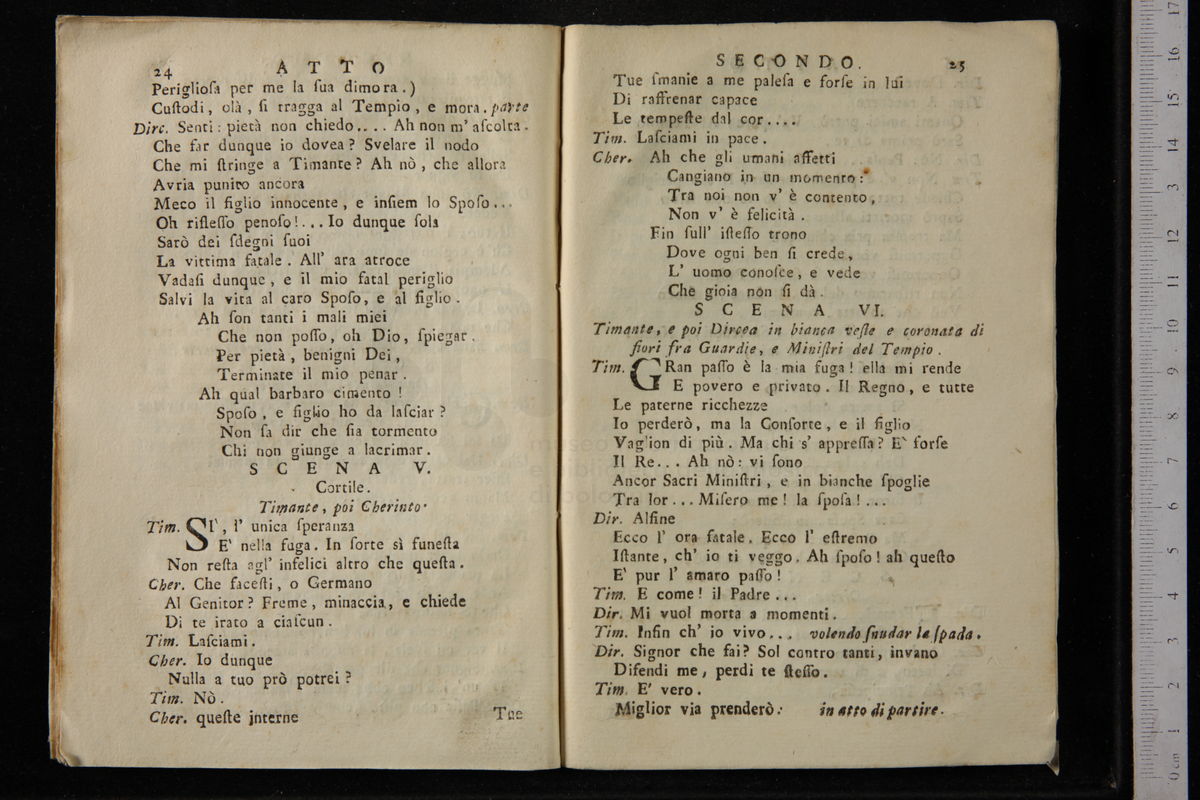 24 ATTO
Periglioſa per me la ſua dimora.)
Cuſtodi, olà, ſi tragga al Tempio, e mora. parte
Dirc. Senti: pietà non chiedo.... Ah non m' aſcolta.
Che far dunque io dovea? Svelare il nodo
Che mi ſtringe a Timante? Ah nò, che allora
Avria punito ancora
Meco il figlio innocente, e inſiem lo Spoſo...
Oh rifleſſo penoſo!... Io dunque ſola
Sarò dei ſdegni ſuoi
La vittima fatale. All' ara atroce
Vadaſi dunque, e il mio fatal periglio
Salvi la vita al caro Spoſo, e al figlio.
Ah ſon tanti i mali miei
Che non poſſo, oh Dio, ſpiegar.
Per pietà, benigni Dei,
Terminate il mio penar.
Ah qual barbaro cimento!
Spoſo, e figlio ho da laſciar?
Non ſa dir che ſia tormento
Chi non giunge a lacrimar.
SCENA V.
Cortile.
Timante, poi Cherinto.
Tim. SI', l' unica ſperanza
E' nella fuga. In ſorte sì funeſta
Non reſta agl' infelici altro che queſta.
Cher. Che faceſti, o Germano
Al Genitor? Freme, minaccia, e chiede
Di te irato a ciaſcun.
Tim. Laſciami.
Cher. Io dunque
Nulla a tuo prò potrei?
Tim. Nò.
Cher. queſte jnterne
Tue
SECONDO. 25
Tue ſmanie a me paleſa e forſe in lui
Di raffrenar capace
Le tempeſte dal cor....
Tim. Laſciami in pace.
Cher. Ah che gli umani affetti
Cangiano in un momento:
Tra noi non v' è contento,
Non v' è felicità.
Fin ſull' iſteſſo trono
Dove ogni ben ſi crede,
L' uomo conoſce, e vede
Che gioia non ſi dà.
SCENA VI.
Timante, e poi Dircea in bianca veſte e coronata di
fiori fra Guardie, e Miniſtri del Tempio.
Tim. GRan paſſo è la mia fuga! ella mi rende
E povero e privato. Il Regno, e tutte
Le paterne ricchezze
Io perderò, ma la Conſorte, e il figlio
Vaglion di più. Ma chi s' appreſſa? E' forſe
Il Re... Ah nò: vi ſono
Ancor Sacri Miniſtri, e in bianche ſpoglie
Tra lor... Miſero me! la ſpoſa!...
Dir. Alfine
Ecco l' ora fatale. Ecco l' eſtremo
Iſtante, ch' io ti veggo. Ah ſpoſo! ah queſto
E' pur l' amaro paſſo!
Tim. E come! il Padre...
Dir. Mi vuol morta a momenti.
Tim. Infin ch' io vivo... volendo ſnudar la ſpada.
Dir. Signor che fai? Sol contro tanti, invano
Difendi me, perdi te ſteſſo.
Tim. E' vero.
Miglior via prenderò: in atto di partire.